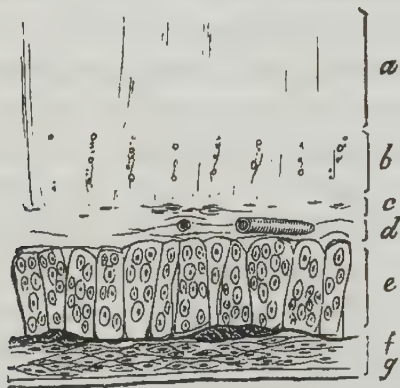 a
b
c
d
e
f
g